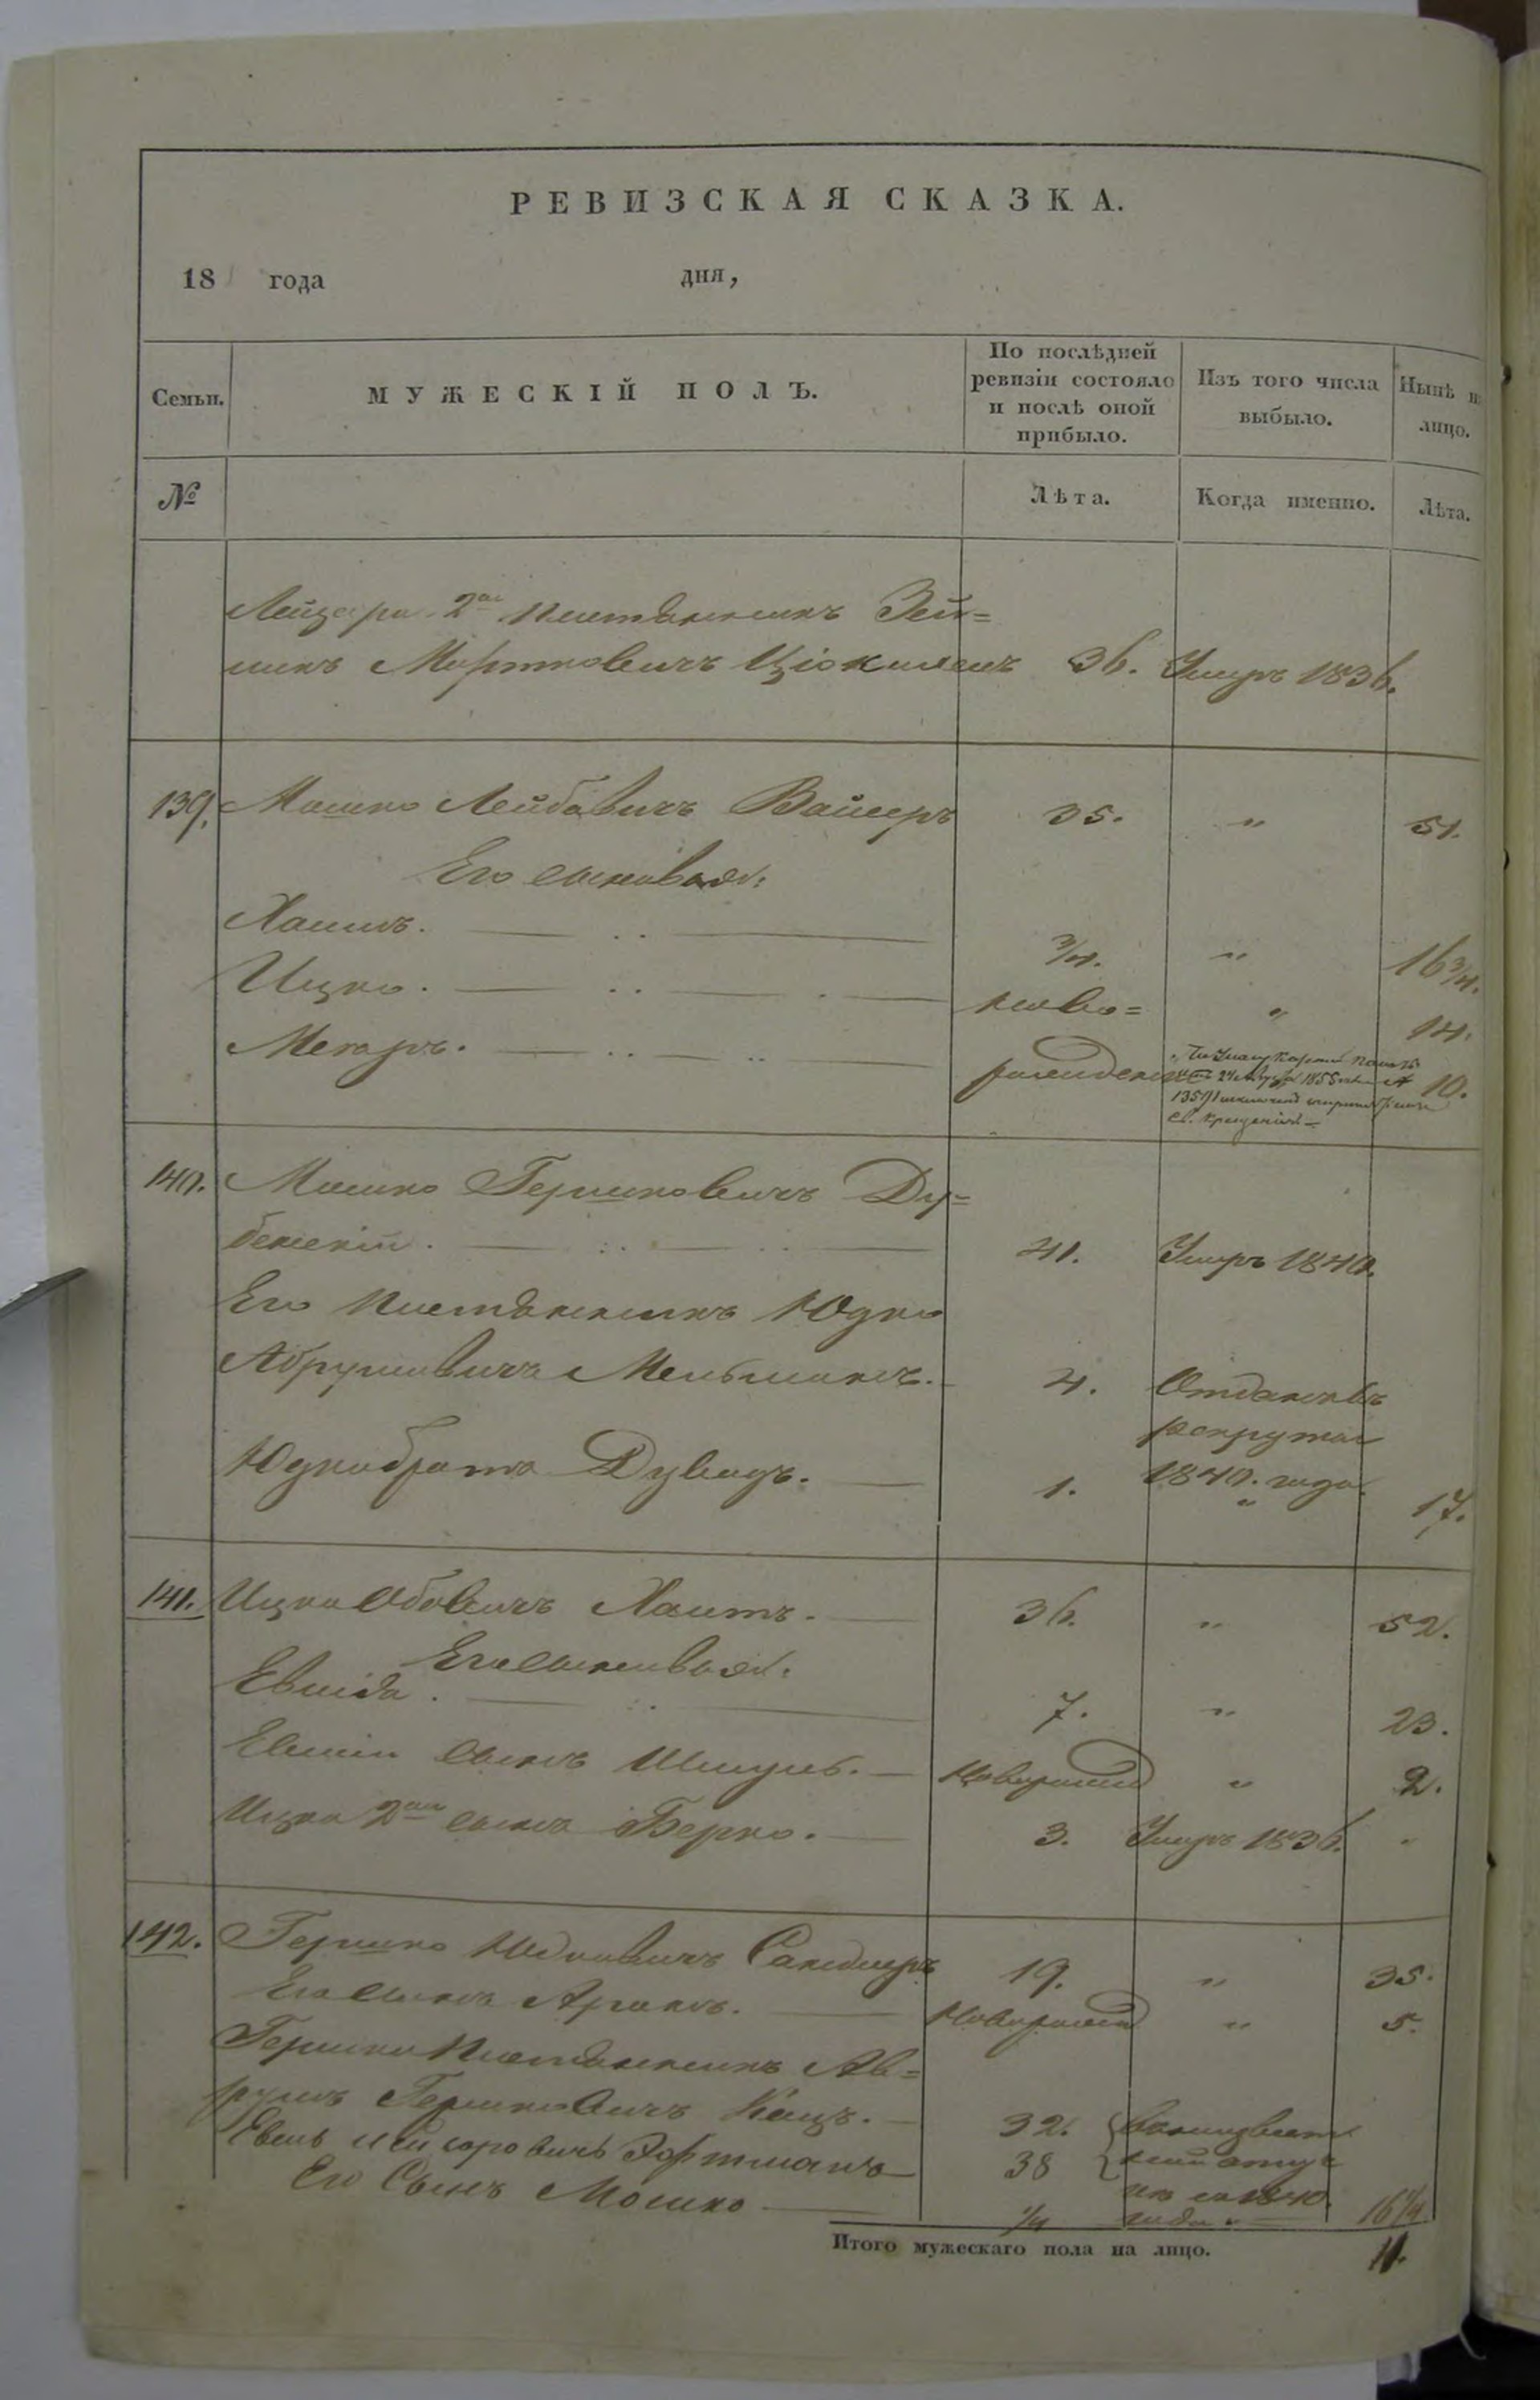 РЕВИЗСКАЯ СКАЗКА.
18 года дня,
Семьи. МУЖЕСКІЙ ПОЛЪ. По послѣдней ревизіи состояло и послѣ оной прибыло. Изъ того числа выбыло. Нынѣ н лицо.
№ Лѣта. Когда именно. Лѣта.
Лейзера 2й Племянникъ Зей=
 Мортковичъ 36. Умръ 1836.
139. Мошко Лейбовичъ Вайсеръ 35. " 51.
Его сыновья:
Хаимъ. 3/4. " 16 3/4.
Ицко. ново= " 14.
Меюръ. рожденные 10.
24 1855
1359
Св. Крещенія
140. Мошко Гершковичъ Ду=
бенскій. 41. Умръ 1840.
Его Племянникъ Юдко
Абрумовичъ Мельникъ. 4. Отданъ въ
рекруты
1840. года.
Юдка братъ Дувидъ. 1. " 17.
141. Ицко Абовичъ Хаитъ. 36. " 52.
Его сыновья:
Евсій. 7. " 23.
Евсія сынъ Шмуль. Новорожд " 2.
Ицка 2й сынъ Берко. 3. Умръ 1836. "
142. Гершко Юдковичъ Сандлеръ 19. " 35.
Его сынъ Аронъ. Новорожд " 5.
Гершка Племянникъ Ав=
румъ Гершковичъ Кацъ. 32.
Фортманъ 38
1840
Его Сынъ Мошко 1/4 года " 16 1/4
Итого мужескаго пола на лицо. 11.